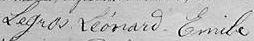 Legros Léonard Emile